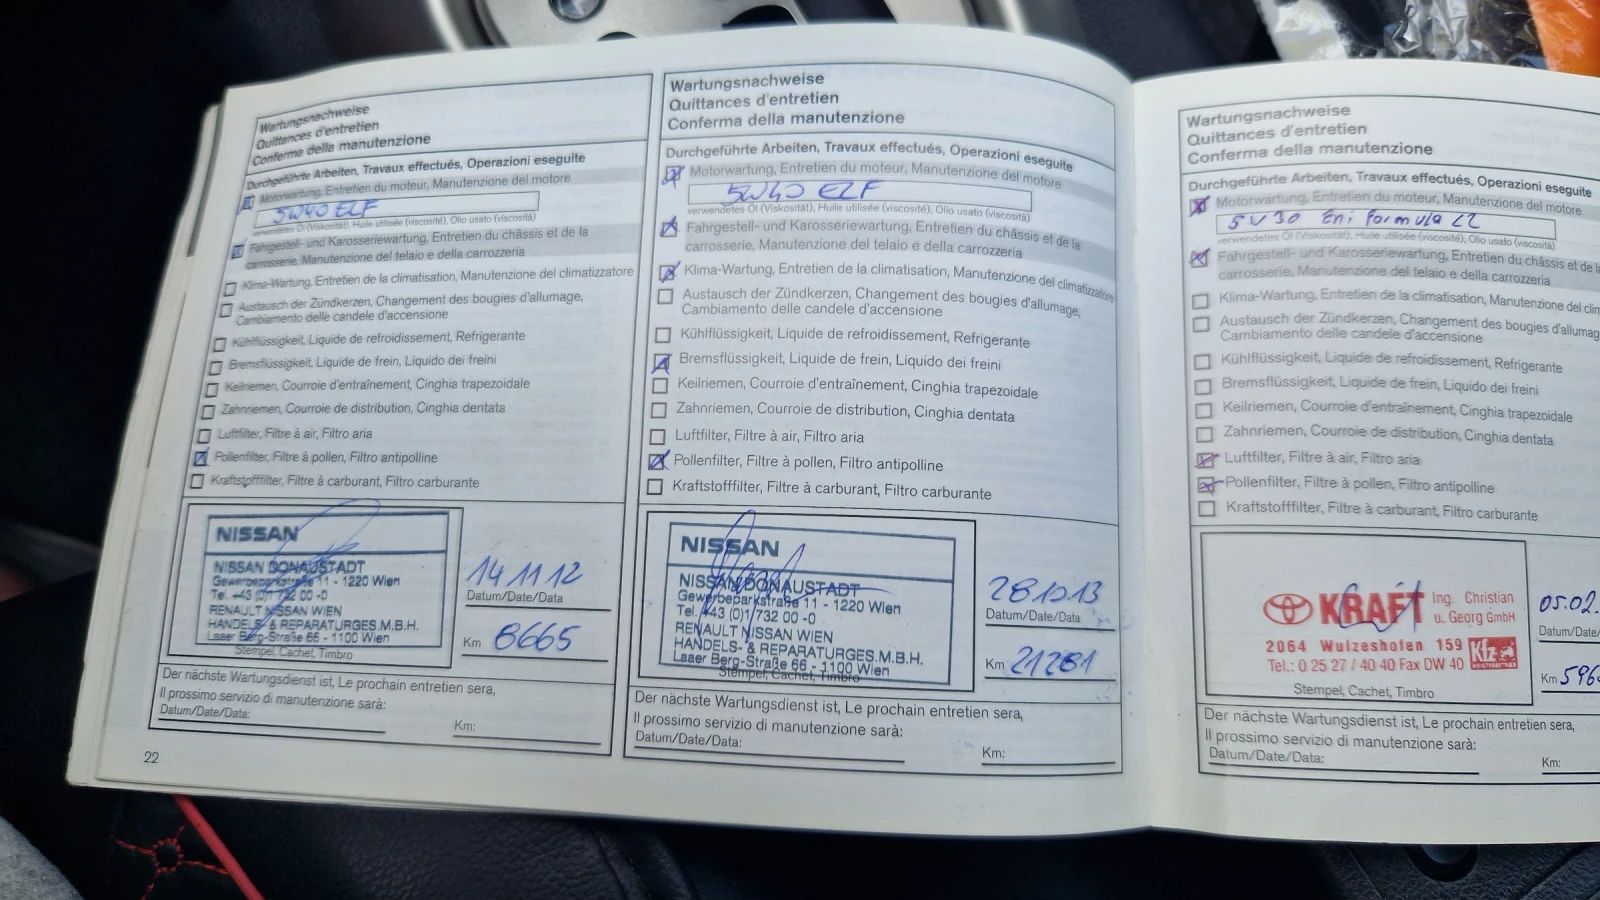 Wartungsnachweise
Quittances d'entretien
Conferma della manutenzione
Durchgeführte Arbeiten, Travaux effectués, Operazioni eseguite
Motorwartung, Entretien du moteur, Manutenzione del motore
5W40 ELF
verwendetes Öl (Viskosität), Huile utilisée (viscosité), Olio usato (viscosità)
Fahrgestell- und Karosseriewartung, Entretien du châssis et de la
carrosserie, Manutenzione del telaio e della carrozzeria
Klima-Wartung, Entretien de la climatisation, Manutenzione del climatizzatore
Austausch der Zündkerzen, Changement des bougies d'allumage,
Cambiamento delle candele d'accensione
Kühlflüssigkeit, Liquide de refroidissement, Refrigerante
Bremsflüssigkeit, Liquide de frein, Liquido dei freini
Keilriemen, Courroie d'entraînement, Cinghia trapezoidale
Zahnriemen, Courroie de distribution, Cinghia dentata
Luftfilter, Filtre à air, Filtro aria
Pollenfilter, Filtre à pollen, Filtro antipolline
Kraftstofffilter, Filtre à carburant, Filtro carburante
NISSAN
NISSAN DONAUSTADT
Gewerbeparkstraße 11 - 1220 Wien
Tel. +43 (0)1 732 00 -0
RENAULT NISSAN WIEN
HANDELS- & REPARATURGES.M.B.H.
Laaer Berg-Straße 66 - 1100 Wien
Stempel, Cachet, Timbro
14 11 12
Datum/Date/Data
Km 8665
Der nächste Wartungsdienst ist, Le prochain entretien sera,
Il prossimo servizio di manutenzione sarà:
Datum/Date/Data:
Km:
22
Wartungsnachweise
Quittances d'entretien
Conferma della manutenzione
Durchgeführte Arbeiten, Travaux effectués, Operazioni eseguite
Motorwartung, Entretien du moteur, Manutenzione del motore
5W40 ELF
verwendetes Öl (Viskosität), Huile utilisée (viscosité), Olio usato (viscosità)
Fahrgestell- und Karosseriewartung, Entretien du châssis et de la
carrosserie, Manutenzione del telaio e della carrozzeria
Klima-Wartung, Entretien de la climatisation, Manutenzione del climatizzatore
Austausch der Zündkerzen, Changement des bougies d'allumage,
Cambiamento delle candele d'accensione
Kühlflüssigkeit, Liquide de refroidissement, Refrigerante
Bremsflüssigkeit, Liquide de frein, Liquido dei freini
Keilriemen, Courroie d'entraînement, Cinghia trapezoidale
Zahnriemen, Courroie de distribution, Cinghia dentata
Luftfilter, Filtre à air, Filtro aria
Pollenfilter, Filtre à pollen, Filtro antipolline
Kraftstofffilter, Filtre à carburant, Filtro carburante
NISSAN
NISSAN DONAUSTADT
Gewerbeparkstraße 11 - 1220 Wien
Tel. +43 (0)1 732 00 -0
RENAULT NISSAN WIEN
HANDELS- & REPARATURGES.M.B.H.
Laaer Berg-Straße 66 - 1100 Wien
Stempel, Cachet, Timbro
28 10 13
Datum/Date/Data
Km 21281
Der nächste Wartungsdienst ist, Le prochain entretien sera,
Il prossimo servizio di manutenzione sarà:
Datum/Date/Data:
Km:
Wartungsnachweise
Quittances d'entretien
Conferma della manutenzione
Durchgeführte Arbeiten, Travaux effectués, Operazioni eseguite
Motorwartung, Entretien du moteur, Manutenzione del motore
5W30 Eni Formula
verwendetes Öl (Viskosität), Huile utilisée (viscosité), Olio usato (viscosità)
Fahrgestell- und Karosseriewartung, Entretien du châssis et de la
carrosserie, Manutenzione del telaio e della carrozzeria
Klima-Wartung, Entretien de la climatisation, Manutenzione del
Austausch der Zündkerzen, Changement des bougies
Cambiamento delle candele d'accensione
Kühlflüssigkeit, Liquide de refroidissement, Refrigerante
Bremsflüssigkeit, Liquide de frein, Liquido dei freini
Keilriemen, Courroie d'entraînement, Cinghia trapezoidale
Zahnriemen, Courroie de distribution, Cinghia dentata
Luftfilter, Filtre à air, Filtro aria
Pollenfilter, Filtre à pollen, Filtro antipolline
Kraftstofffilter, Filtre à carburant, Filtro carburante
KRAFT Ing. Christian
u. Georg GmbH
2064 Wulzeshofen 159
Tel.: 0 25 27 / 40 40 Fax DW 40
Kfz
Stempel, Cachet, Timbro
05.02.
Datum/Date/
Km 596
Der nächste Wartungsdienst ist, Le prochain entretien sera,
Il prossimo servizio di manutenzione sarà:
Datum/Date/Data:
Km: